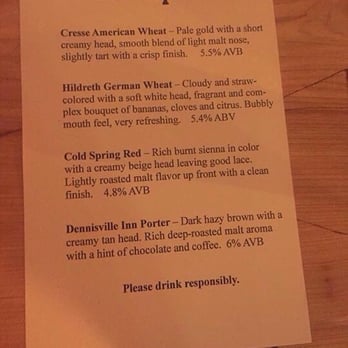 Cresse American Wheat – Pale gold with a short
creamy head, smooth blend of light malt nose,
slightly tart with a crisp finish. 5.5% AVB
Hildreth German Wheat – Cloudy and straw-
colored with a soft white head, fragrant and com-
plex bouquet of bananas, cloves and citrus. Bubbly
mouth feel, very refreshing. 5.4% ABV
Cold Spring Red – Rich burnt sienna in color
with a creamy beige head leaving good lace.
Lightly roasted malt flavor up front with a clean
finish. 4.8% AVB
Dennisville Inn Porter – Dark hazy brown with a
creamy tan head. Rich deep-roasted malt aroma
with a hint of chocolate and coffee. 6% AVB
Please drink responsibly.